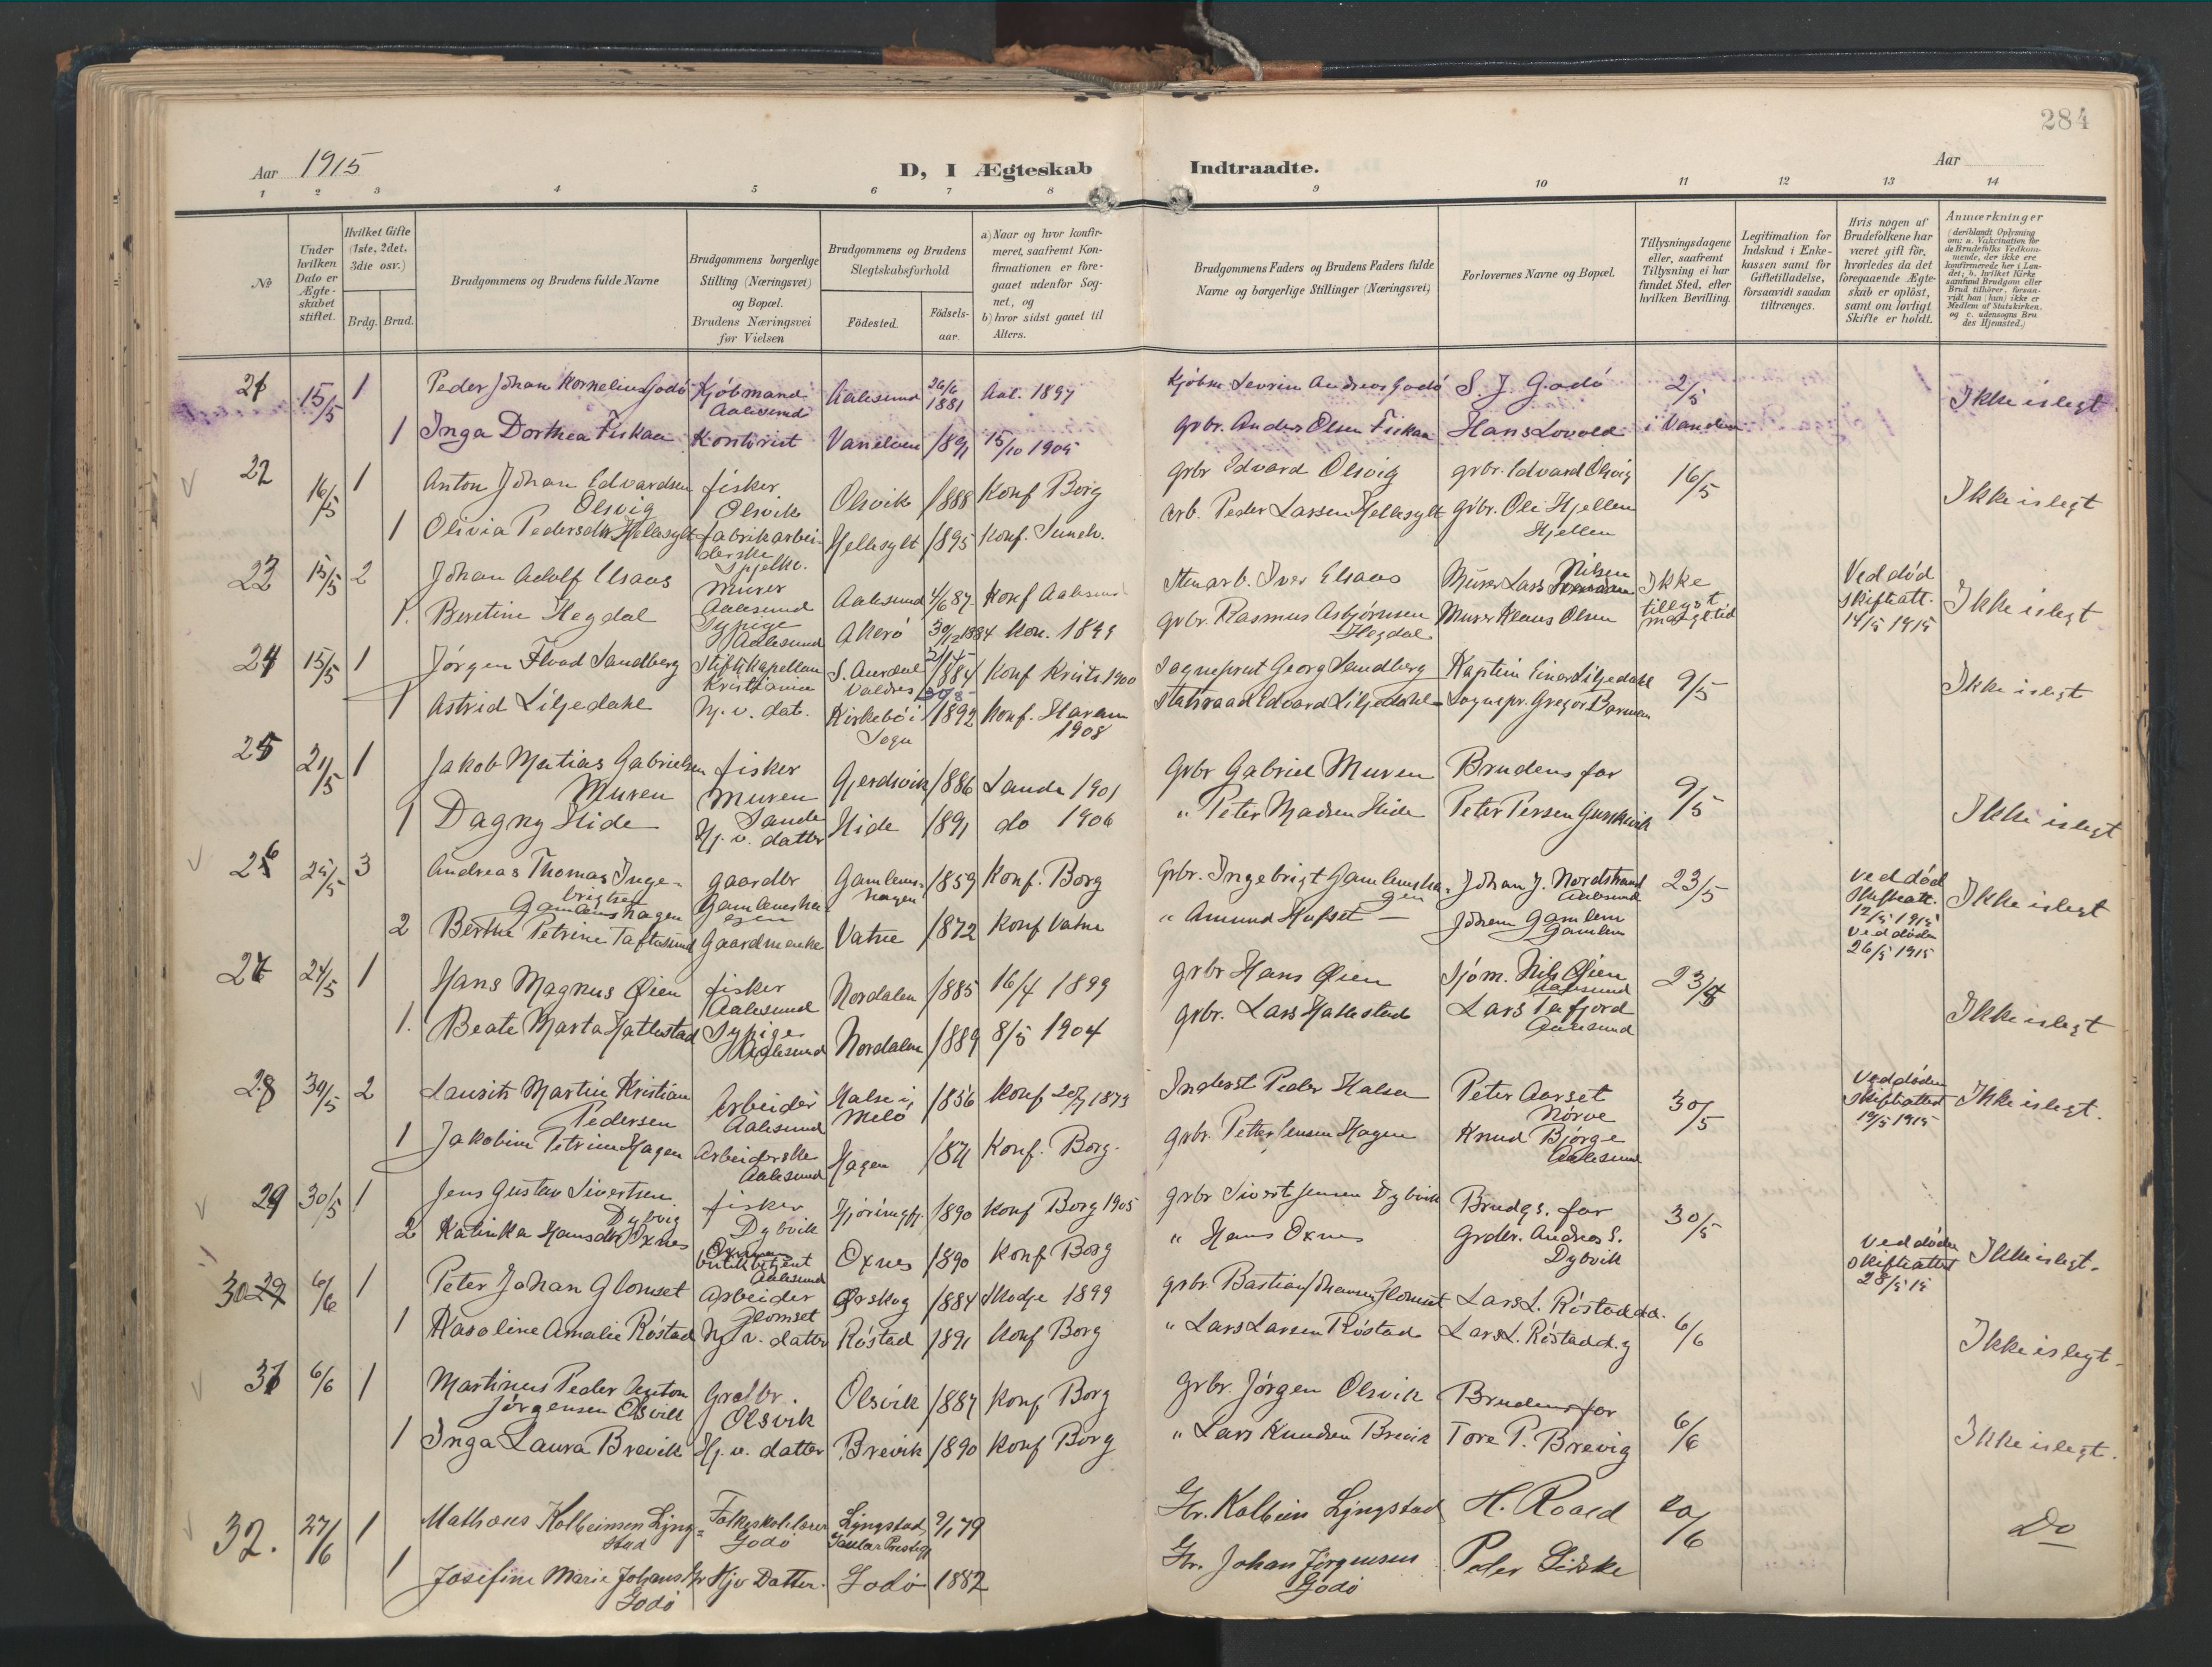 284
Aar 1915
D, I Ægteskab Indtraadte.
Aar
1 2 3 4 5 6 7 8 9 10 11 12 13 14
No
Under hvilken Dato er Ægteskabet stiftet.
Hvilket Gifte (1ste, 2det, 3die osv.)
Brdg. Brud.
Brudgommens og Brudens fulde Navne
Brudgommens borgerlige Stilling (Næringsvei) og Bopæl. Brudens Næringsvei før Vielsen
Brudgommens og Brudens Slegtskabsforhold
Fødested. Fødselsaar.
a) Naar og hvor konfirmeret, saafremt Konfirmationen er foregaaet udenfor Sognet, og
b) hvor sidst gaaet til Alters.
Brudgommens Faders og Brudens Faders fulde Navne og borgerlige Stillinger (Næringsvei)
Forlovernes Navne og Bopæl.
Tillysningsdagene eller, saafremt Tillysning ei har fundet Sted, efter hvilken Bevilling.
Legitimation for Indskud i Enkekassen samt for Giftetilladelse, forsaavidt saadan tiltrænges.
Hvis nogen af Brudefolkene har været gift før, hvorledes da det foregaaende Ægteskab er opløst, samt om lovligt Skifte er holdt.
Anmærkninger (deriblandt Oplysning om: a. Vakcination for de Brudefolks Vedkommende, der ikke ere konfirmerede her i Landet; b. hvilket Kirkesamfund Brudgom eller Brud tilhører, forsaavidt han (hun) ikke er Medlem af Statskirken, og c. udensogns Brudes Hjemsted.)
21 15/5 1 Peder Johan Kornelius Godø Kjøbmand Aalesund Aalesund 26/6 1881 Aal. 1897 Kjøbm Sevrin Andreas Godø S. J. Godø 2/5 Ikke i slegt
1 Inga Dorthea Fiskaa Kontorist Vanelven 1891 15/10 1905 Grbr. Anders Olsen Fiskaa Hans Lovold i Vanelven
22 16/5 1 Anton Johan Edvardsen Olsvig fisker Olsvik Olsvik 1888 Konf Borg grbr Edvard Olsvig grbr. Edvard Olsvig 16/5 Ikke i slegt
1 Olivia Pedersdtr Hellesylt fabrikarbeiderske Spjelkv. Hellesylt 1895 Konf. Sunelv. arb. Peder Larsen Hellesylt grbr. Ole Hjellen Hjellen
23 15/5 2 Johan Adolf Elsaas Murer Aalesund Aalesund 4/6 87 Konf Aalesund Stenarb. Iver Elsaas Murer Lars Nilsen Ikke tillyst mangl. tid Ved død skifteatt. 14/5 1915 Ikke i slegt
1. Beretine Hegdal Sypige Aalesund Akerø 30/2 1884 Kon. 1899 grbr. Rasmus Asbjørnsen Hegdal Murer Klaus Olsen
24 15/5 1 Jørgen Flood Sandberg Stiftskapellan Kristiania S. Aurdal Valdres 1884 Konf Krist. 1900 Sogneprest Georg Sandberg Kaptein Einar Liljedahl 9/5 Ikke i slegt
1 Astrid Liljedahl Hj. v. dat. Kirkebø i Sogn 1892 Konf. Haram 1908 Statsraad Edvard Liljedahl Sognepr. Gregor Barman
25 21/5 1 Jakob Matias Gabrielsen Muren fisker Muren Sande Gjerdsvik 1886 Sande 1901 Grbr Gabriel Muren Brudens far 9/5 Ikke i slegt
1 Dagny Hide Hj. v. datter Hide 1891 do 1906 " Peter Madsen Hide Peter Persen Gurskevik
26 25/5 3 Andreas Thomas Ingebrigtsen Gamlemshagen gaardbr Gamlemshagen Gamlemshagen 1859 Konf. Borg Grbr. Ingebrigt Gamlemshagen Johan J. Nordstrand Aalesund 23/5 Ved død Skifteatt. 12/5 1915 Ikke i slegt
2 Berthe Petrine Taftasund Gaardmenke Vatne 1872 Konf Vatne " Amund Hufset Johan Gamlem Gamlem Ved døden 26/5 1915
27 24/5 1 Hans Magnus Øien fisker Aalesund Nordalen 1885 16/4 1899 grbr Hans Øien Sjøm. Nils Øien Aalesund 23/5 Ikke i slegt
1. Beate Marta Hattestad Sypige Aalesund Nordalen 1889 8/5 1904 grbr. Lars Hattestad Lars Tafjord Aalesund
28 30/5 2 Laurits Martin Kristian Pedersen Arbeider Aalesund Halse i Melø 1856 Konf 20/7 1873 Inderst Peder Halsa Peter Aarset Nørve 30/5 Ved døden Skifteattest 19/5 1915 Ikke i slegt.
1 Jakobine Petrine Hagen Arbeiderske Aalesund Hagen 1871 Konf. Borg. grbr. Petter Jensen Hagen Knud Bjørge Aalesund
29 30/5 1 Jens Gustav Sivertsen Dybvig fisker Dybvik Hjørungfj. 1890 Konf Borg 1905 grbr Sivert Jensen Dybvik Brudgs. far 30/5
2 Katinka Hansdtr Oxnes butikbetjent Aalesund Oxnes 1890 Konf Borg " Hans Oxnes Grdbr. Andreas S. Dybvik Ved døden skifteattest 28/5 15 Ikke i slegt.
30 6/6 1 Peter Johan Glomset Arbeider Glomset Ørskog 1884 Skodje 1899 grbr. Bastian Johansen Glomset Lars L. Røstad d.e. 6/6 Ikke i slegt.
1 Karoline Amalie Røstad Hj v. datter Røstad 1891 Konf Borg " Lars Larsen Røstad Lars L. Røstad d.y
31 6/6 1 Martinus Peder Anton Jørgensen Olsvik Grdbr. Olsvik Olsvik 1887 Konf Borg grbr. Jørgen Olsvik Brudens far 6/6 Ikke i slegt.
1 Inga Laura Brevik Hj. v. datter Brevik 1890 Konf Borg " Lars Knudsen Brevik Tore P. Brevig
32. 27/6 1 Mathæus Kolbeinsen Ljngstad Folkeskolelærer Godø Ljngstad 9/1 79 Gr. Kolbein Ljngstad H. Roald 20/6 Do
1 Josefine Marie Johansdtr Godø Hjv Datter. Godø 1882 Gr. Johan Jørgensen Godø Peder Giske